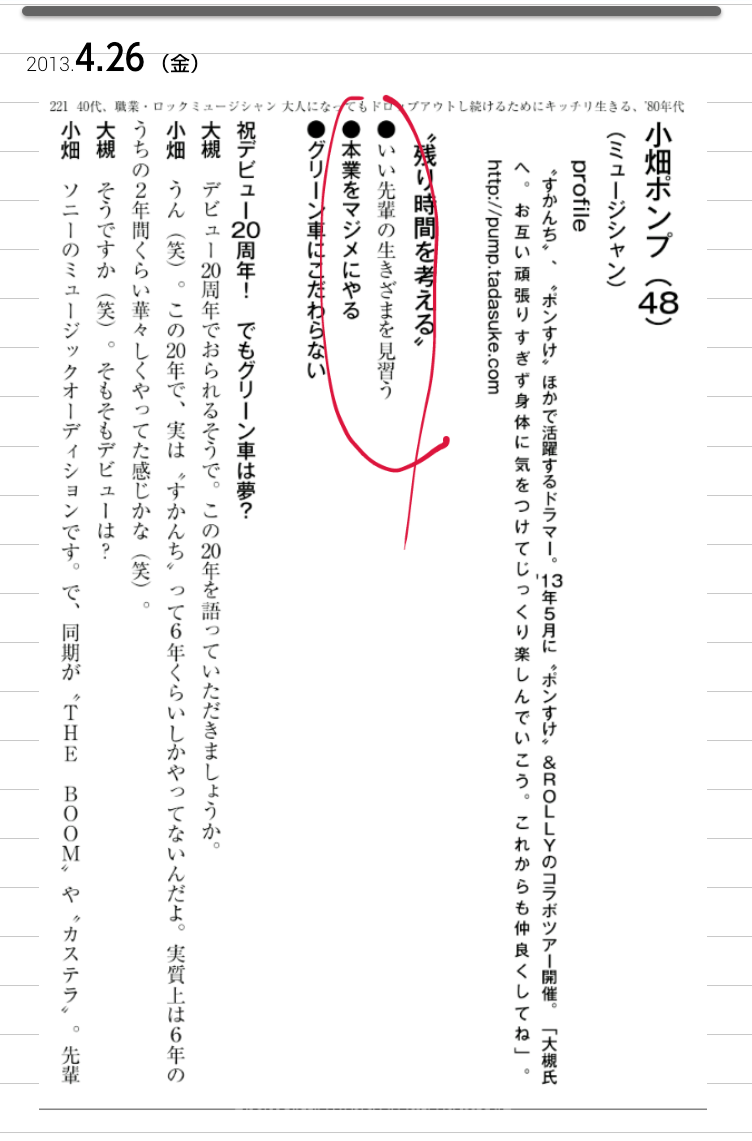 2013.4.26（金）
221 40代、職業・ロックミュージシャン 大人になってもドロップアウトし続けるためにキッチリ生きる、'80年代
小畑ポンプ（48）
（ミュージシャン）
profile
〝すかんち〟、〝ポンすけ〟ほかで活躍するドラマー。'13年5月に〝ポンすけ〟&ROLLYのコラボツアー開催。「大槻氏
へ。お互い頑張りすぎず身体に気をつけてじっくり楽しんでいこう。これからも仲良くしてね」。
http://pump.tadasuke.com
〝残り時間を考える〟
●いい先輩の生きざまを見習う
●本業をマジメにやる
●グリーン車にこだわらない
祝デビュー20周年！ でもグリーン車は夢？
大槻 デビュー20周年でおられるそうで。この20年を語っていただきましょうか。
小畑 うん（笑）。この20年で、実は〝すかんち〟って6年くらいしかやってないんだよ。実質上は6年の
うちの2年間くらい華々しくやってた感じかな（笑）。
大槻 そうですか（笑）。そもそもデビューは？
小畑 ソニーのミュージックオーディションです。で、同期が〝THE BOOM〟や〝カステラ〟。先輩